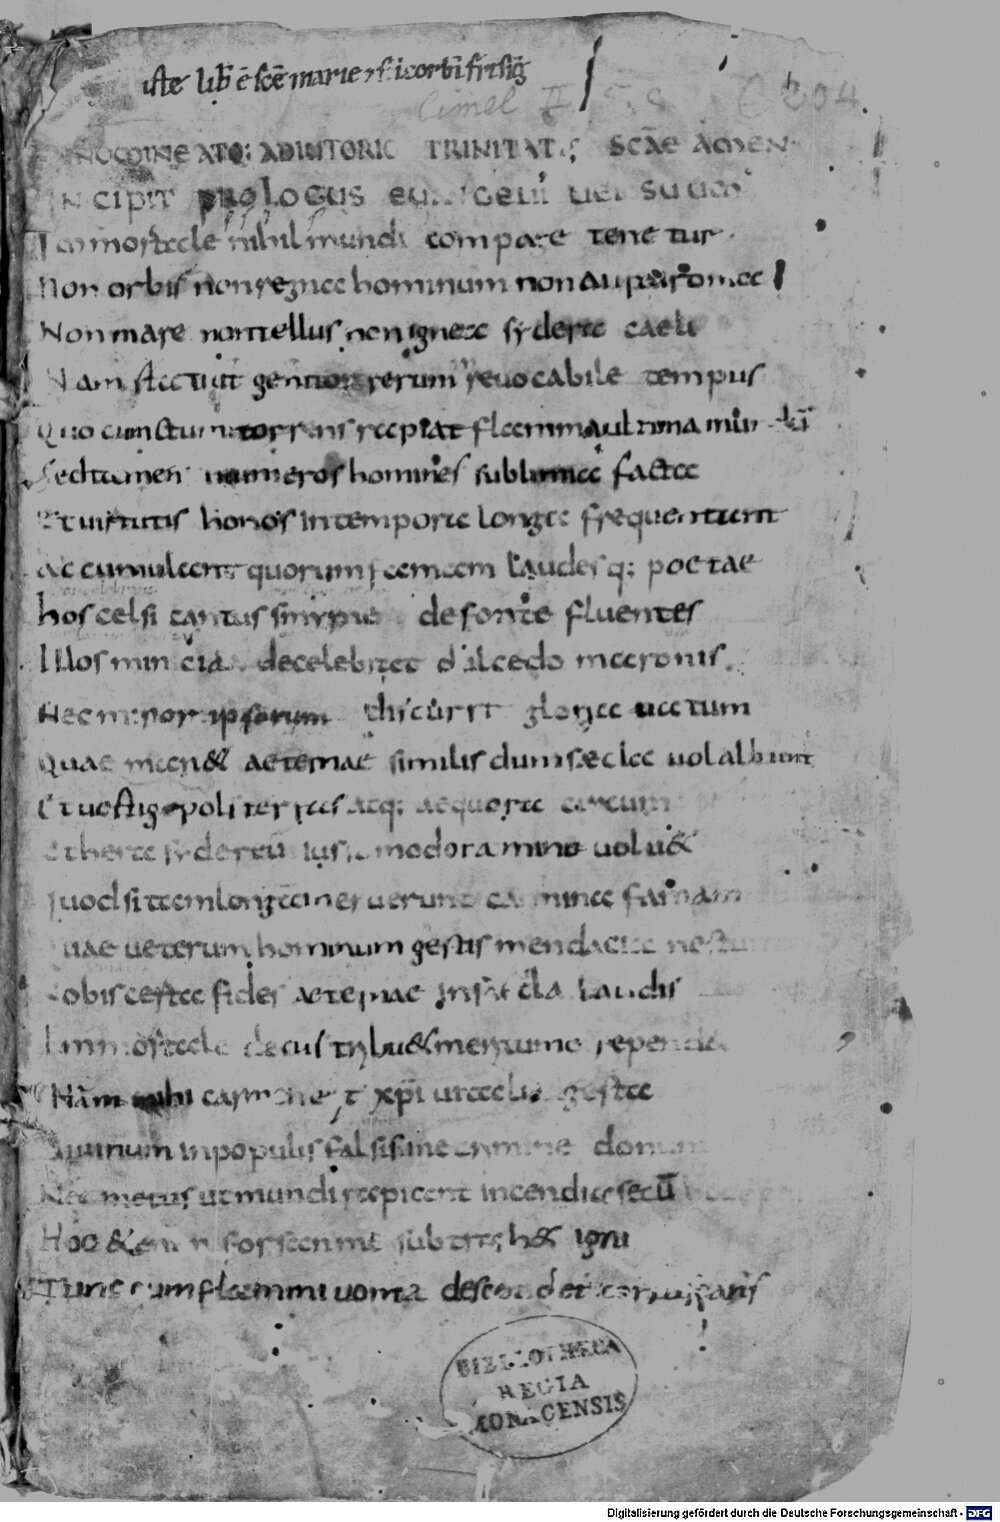 iste lib ē scē marie et sci corbī frisīg
Cimel
IN NOMINE ATQ: ADIUTORIO TRINITATIS SCĀE AMEN
INCIPIT PROLOGUS EUANGELII UERSUUM
Immortale nihil mundi compage tenetur
Non orbis non regna hominum non aurea roma
Non mare non tellus non ignea sydera caeli
Nam statuit genitor rerum reuocabile tempus
Quo cunctum torrens rapiat flamma ultima mundū
Sed tamen numeros homines sublimia facta
Et uirtutis honos in tempora longa frequentunt
Accumulant quorum famam laudesq: poetae
hos celsi cantus smyrnae de fonte fluentes
Illos minciadae celebrat dulcedo maronis
Nec minor ipsorum discurrit gloria uatum
Quae manet aeternae similis dum saecla uolabunt
Et uertigo poli terras atq: aequora circum
Ethera syderaeū iusso moderamine uoluet
Quod si tam longa meruerunt carmina famam
Quae ueterum hominum gestis mendacia nectunt
Nobis certa fides aeternae in saecla laudis
Immortale decus tribuet meritumq. rependet
Nam mihi carmen erit xpī uitalia gesta
Diuinum in populis falsi sine crimine donum
Nec metus ut mundi rapiant incendia secū
Hoc etenim forsan me subtrahet igni
Tunc cum flammiuoma descendet coruscans
BIBLIOTHECA
REGIA
MONACENSIS
Digitalisierung gefördert durch die Deutsche Forschungsgemeinschaft - DFG